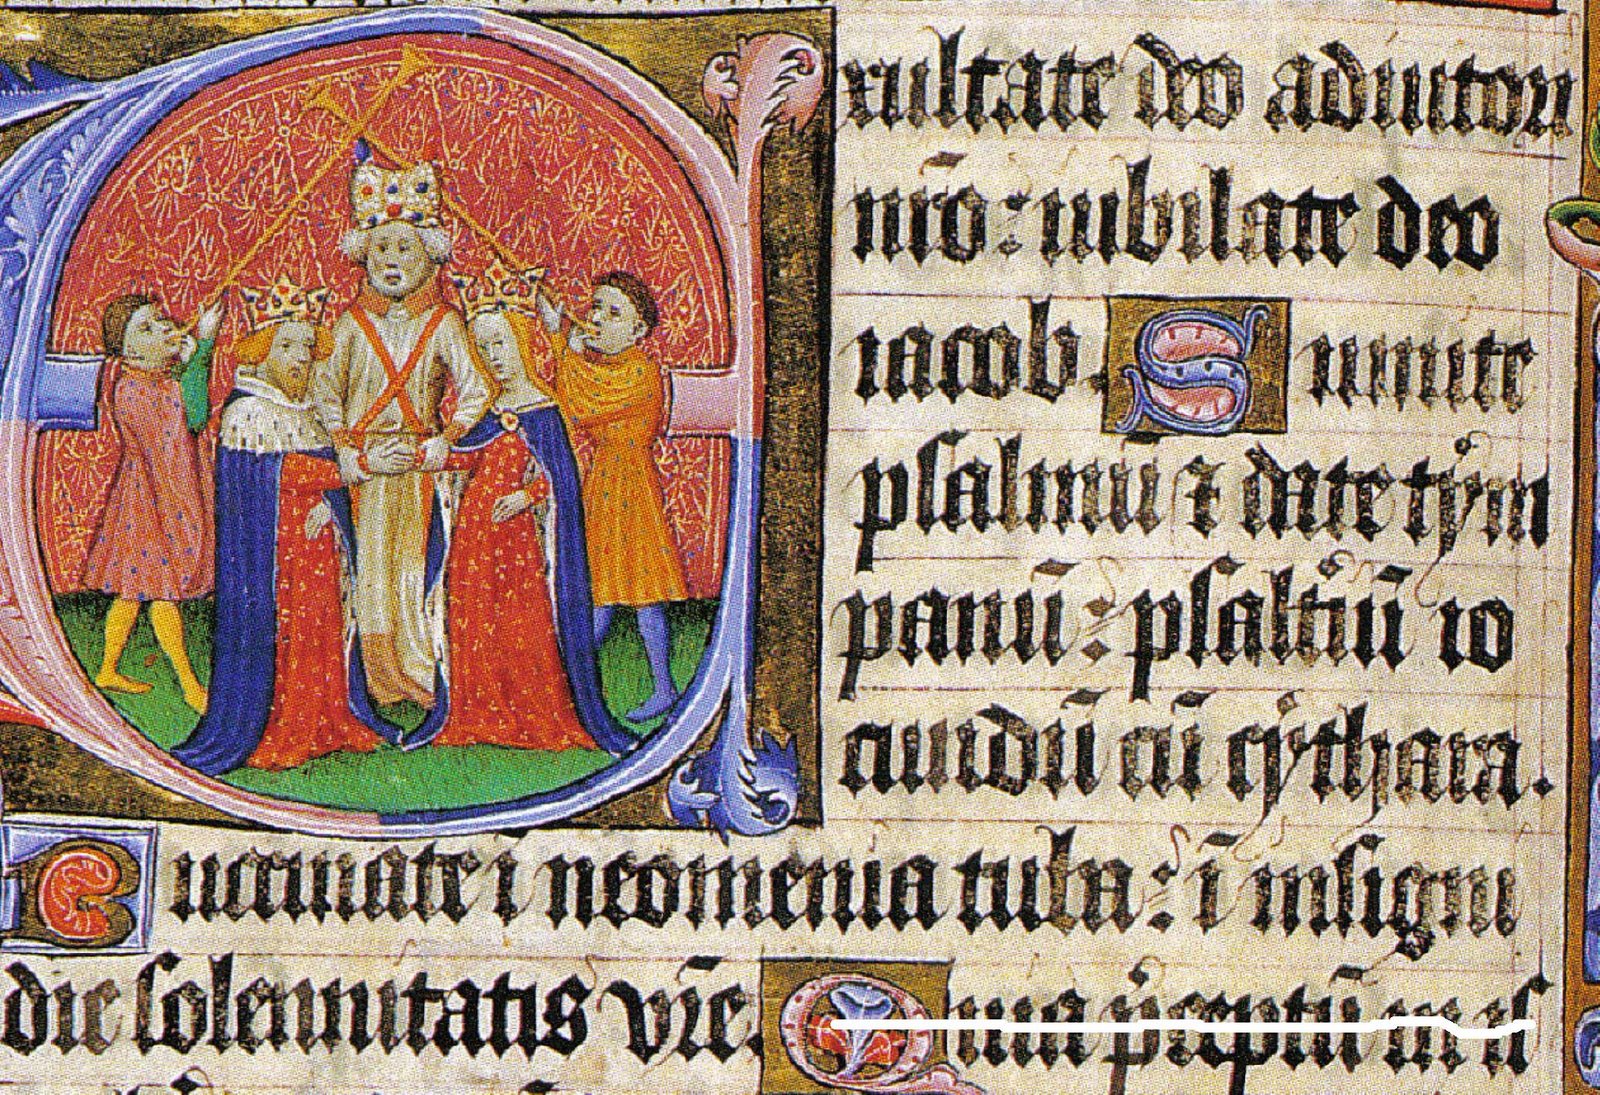 Exultate deo adiutori
nr̄o : iubilate deo
iacob . Sumite
psalmū ⁊ date tym
panū : psaltiū io
cundū cū cythara .
Buccinate ī neomenia tuba : ī insigni
die solennitatis vr̄e . Quia p̄ceptū in